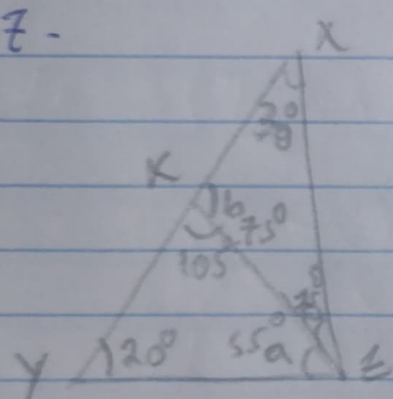 7-
X
30°
K
b 75°
105
75°
Y 20° 55° a Z